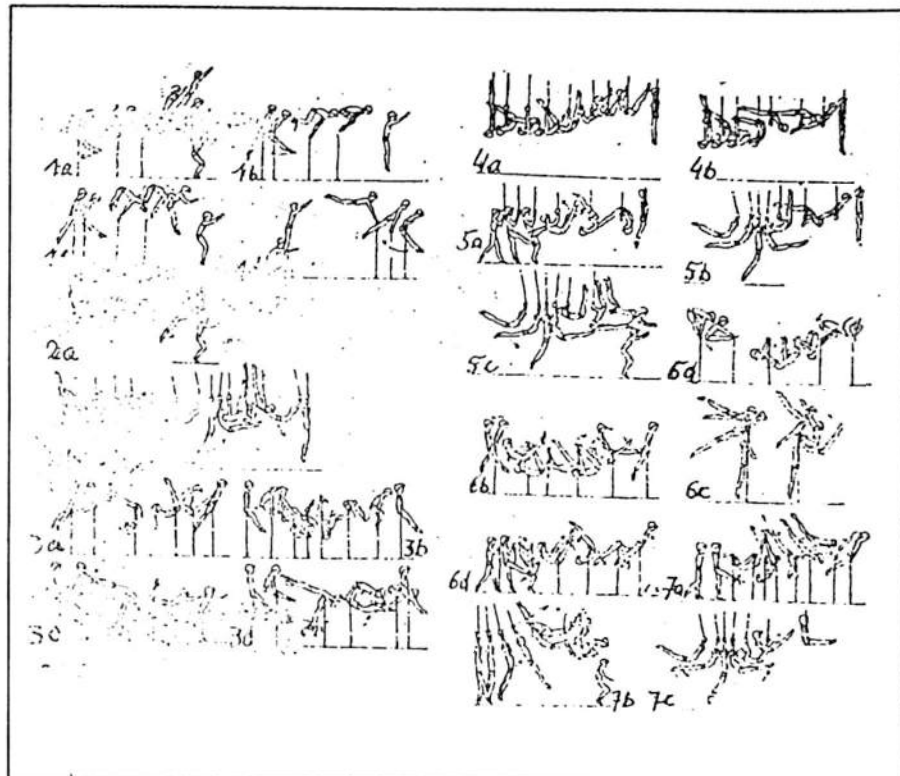 1a
1b
2a
3a
3b
3c
3d
4a
4b
5a
5b
5c
6a
6b
6c
6d
7a
7b
7c